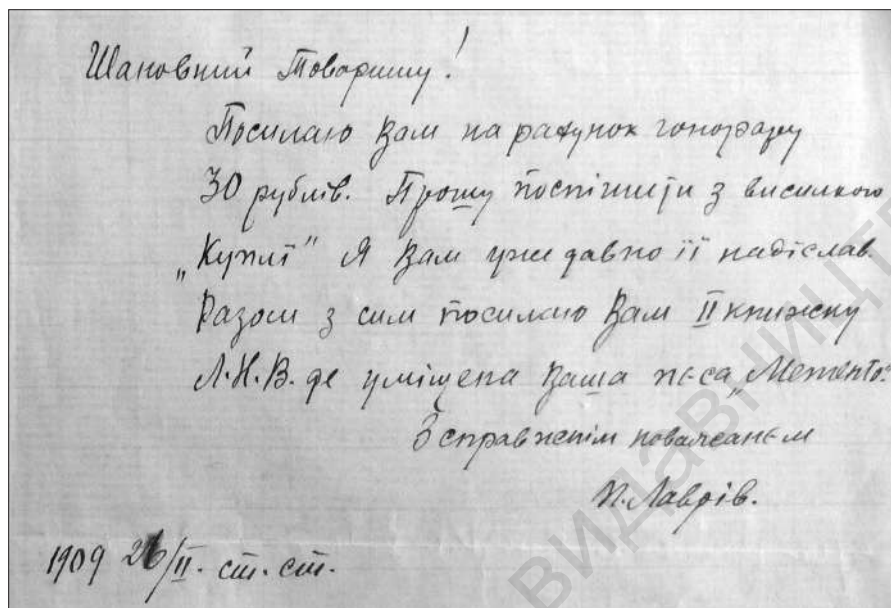 Шановний Товаришу!
Посилаю Вам на рахунок гонорару
30 рублів. Прошу поспішити з висилкою
„Купли" Я Вам уже давно її надіслав.
Разом з сим посилаю Вам II книжку
Л.Н.В. де уміщена Ваша пєса „Мементо"
З справжнім поважанєм
П. Лаврів.
1909 26/II. ст. ст.
видавництв